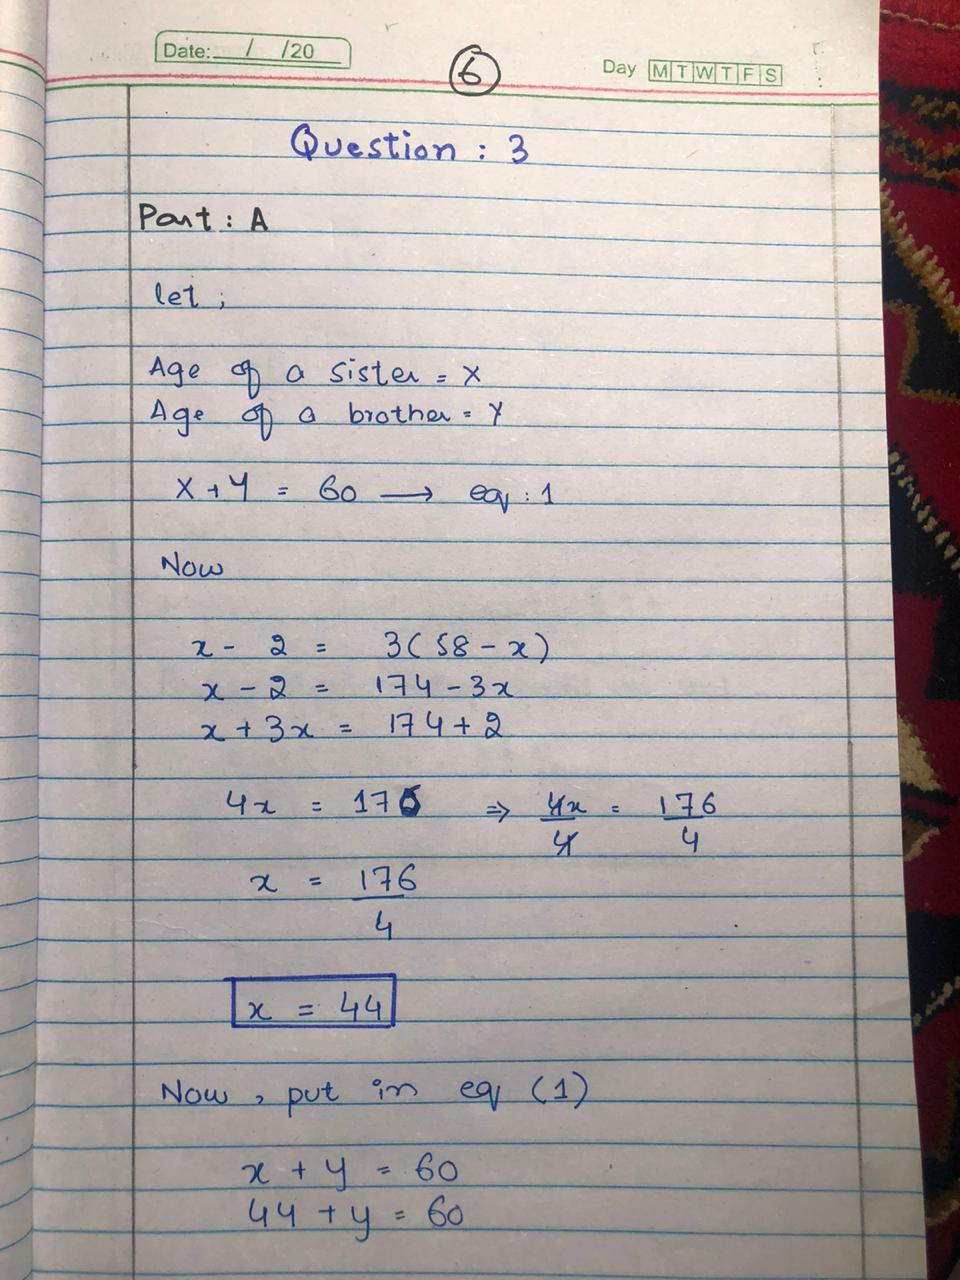 Date: / /20
6
Day M T W T F S
Question : 3
Part : A
let ;
Age of a sister = X
Age of a brother = Y
X + Y = 60 → eq : 1
Now
x - 2 = 3(58 - x)
x - 2 = 174 - 3x
x + 3x = 174 + 2
4x = 176 ⇒ 4x/4 = 176/4
x = 176/4
x = 44
Now , put in eq (1)
x + y = 60
44 + y = 60